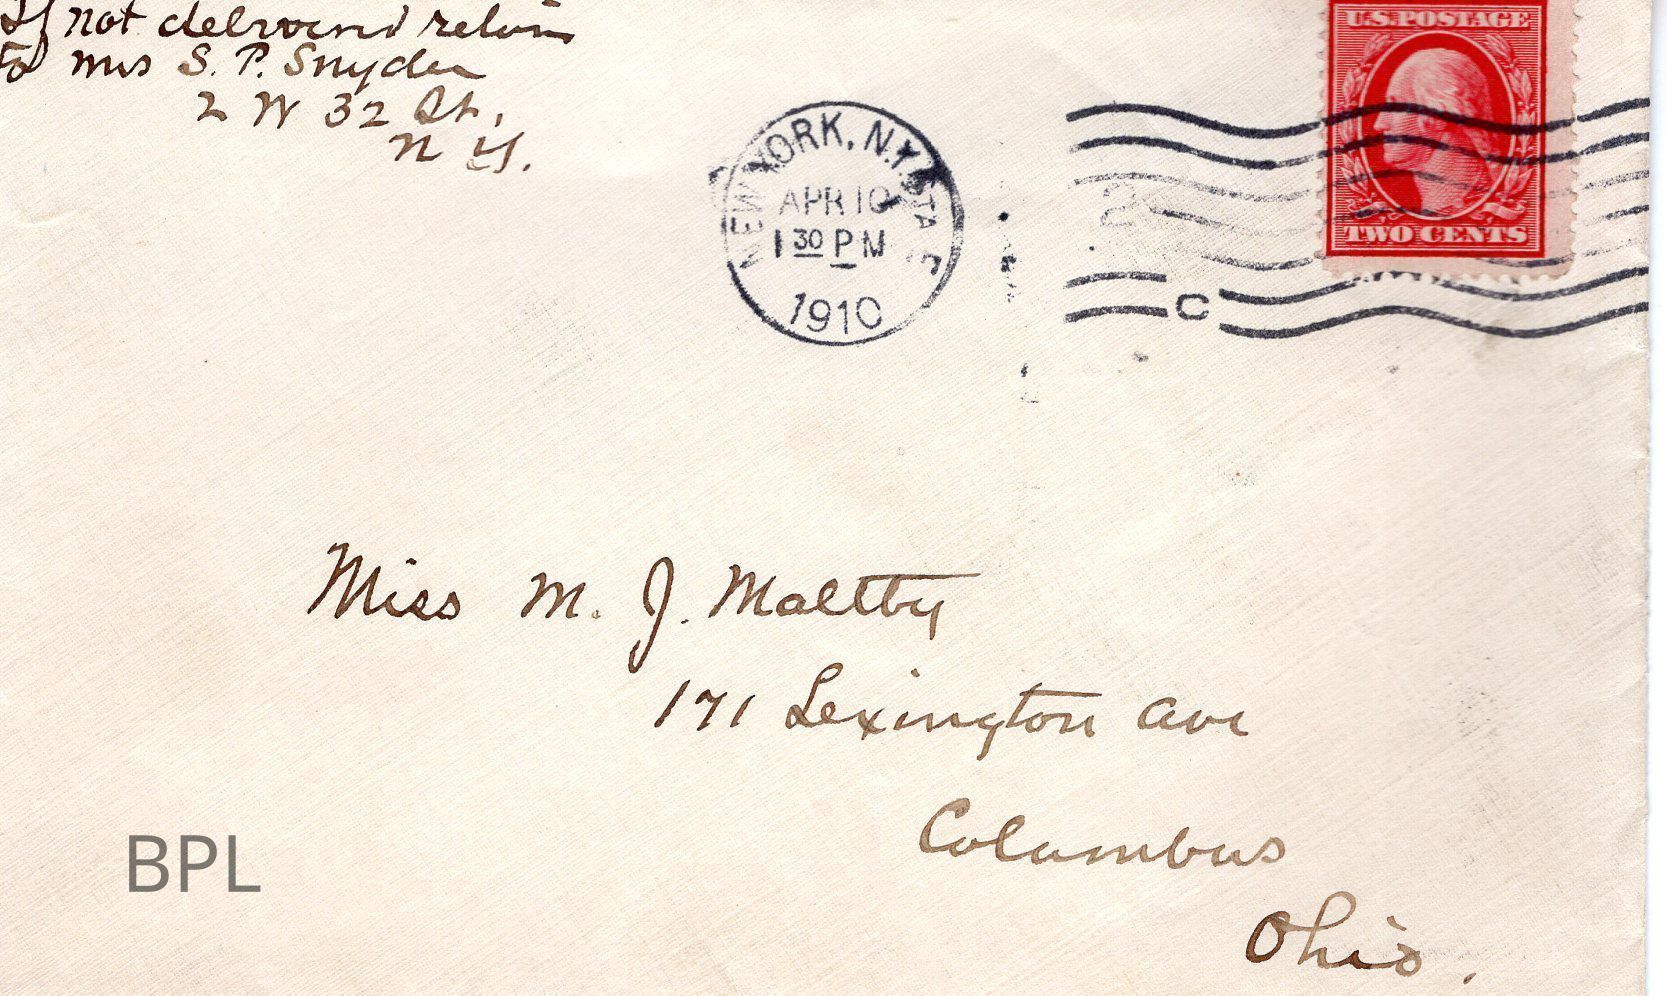 If not delivered return
To Mrs S. P. Snyder
2 W 32 St.
N Y.
U.S. POSTAGE
TWO CENTS
NEW YORK, N.Y. STA C
APR 10
1 30 PM
1910
C
Miss M. J. Maltby
171 Lexington Ave
Columbus
Ohio.
BPL